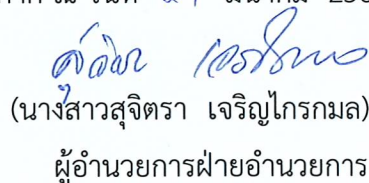 วันที่ มีนาคม
(นางสาวสุจิตรา เจริญไกรกมล)
ผู้อำนวยการฝ่ายอำนวยการ